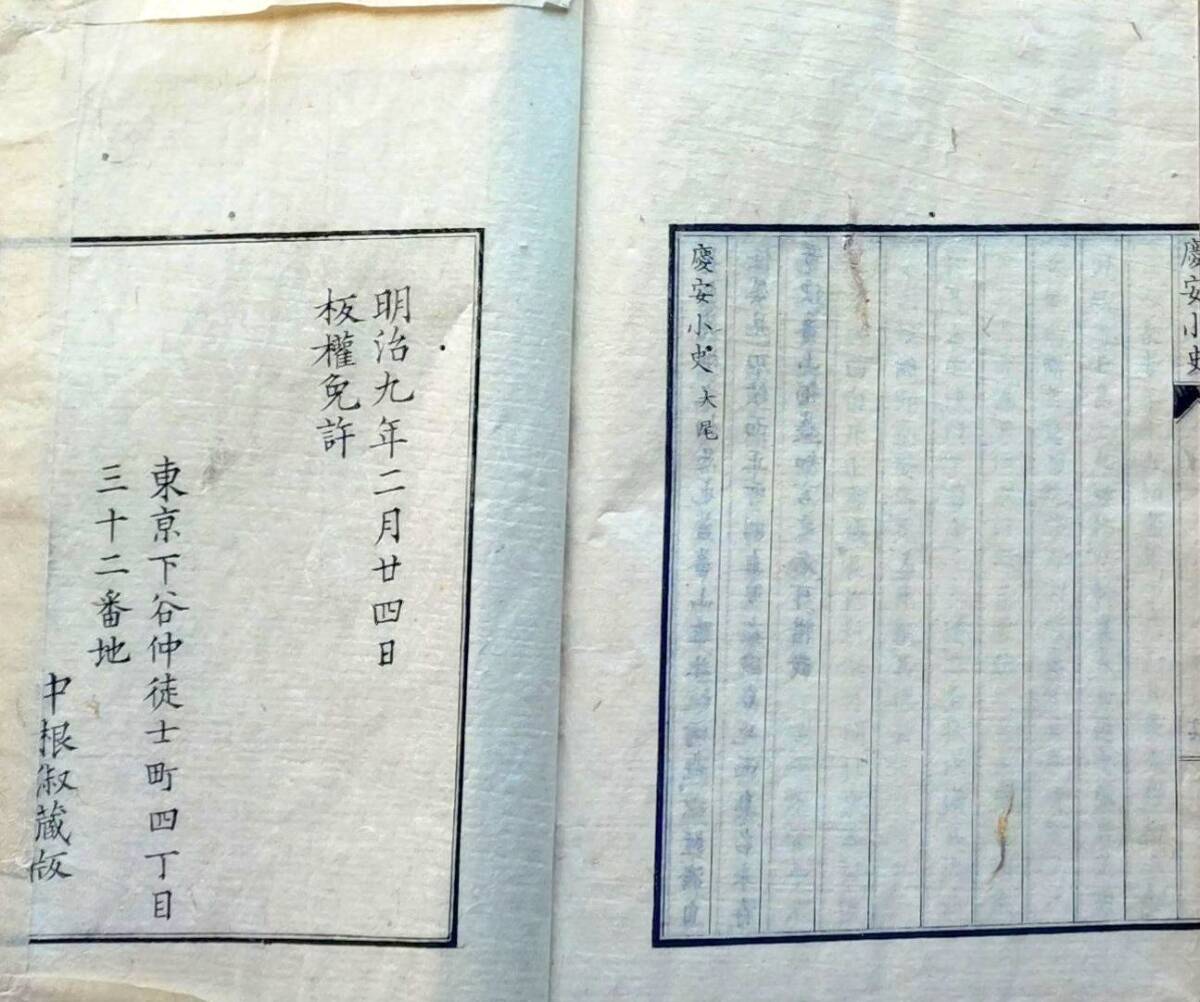 慶安小史
慶安小史 大尾
明治九年二月廿四日
板權免許
東京下谷仲徒士町四丁目
三十二番地
中根淑蔵版